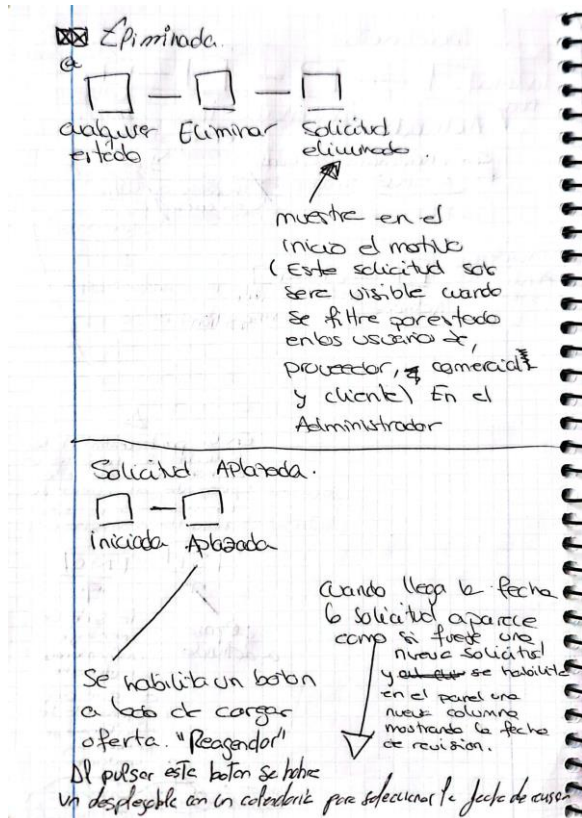 Eliminada.
@
cualquier Eliminar Solicitud
estado eliminada.
muestre en el
inicio el motivo
(Este solicitud solo
sera visible cuando
se filtre por estado
en los usuarios de,
proveedor, comercial
y cliente) En el
Administrador
Solicitud Aplazada.
iniciada Aplazada
Se habilita un boton
a lado de cargar
oferta. "Reagendar"
Al pulsar este boton se habre
un desplegable con un calendario para seleccionar la fecha de
cuando llega la fecha
la solicitud aparece
como si fuese una
nueva solicitud
y se habilita
en el panel una
nueva columna
mostrando la fecha
de revision.